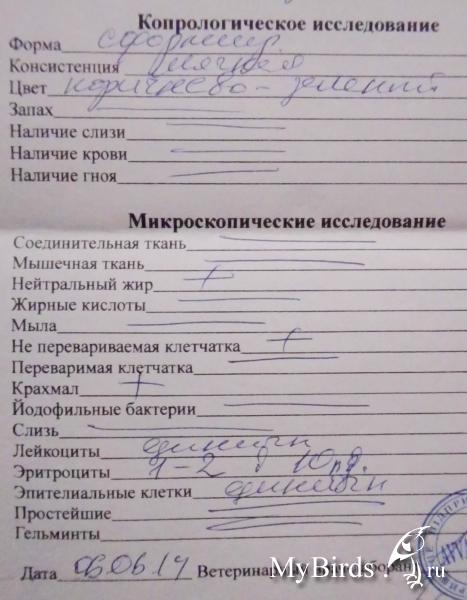 Копрологическое исследование
Форма сформир
Консистенция мягкая
Цвет коричнево-зеленый
Запах —
Наличие слизи —
Наличие крови —
Наличие гноя —
Микроскопические исследование
Соединительная ткань —
Мышечная ткань —
Нейтральный жир +
Жирные кислоты —
Мыла —
Не перевариваемая клетчатка +
Переваримая клетчатка —
Крахмал +
Йодофильные бактерии —
Слизь —
Лейкоциты единичн
Эритроциты 1-2 в 10
Эпителиальные клетки единичн
Простейшие —
Гельминты —
Дата 06.06.14 Ветеринарн
MyBirds.ru